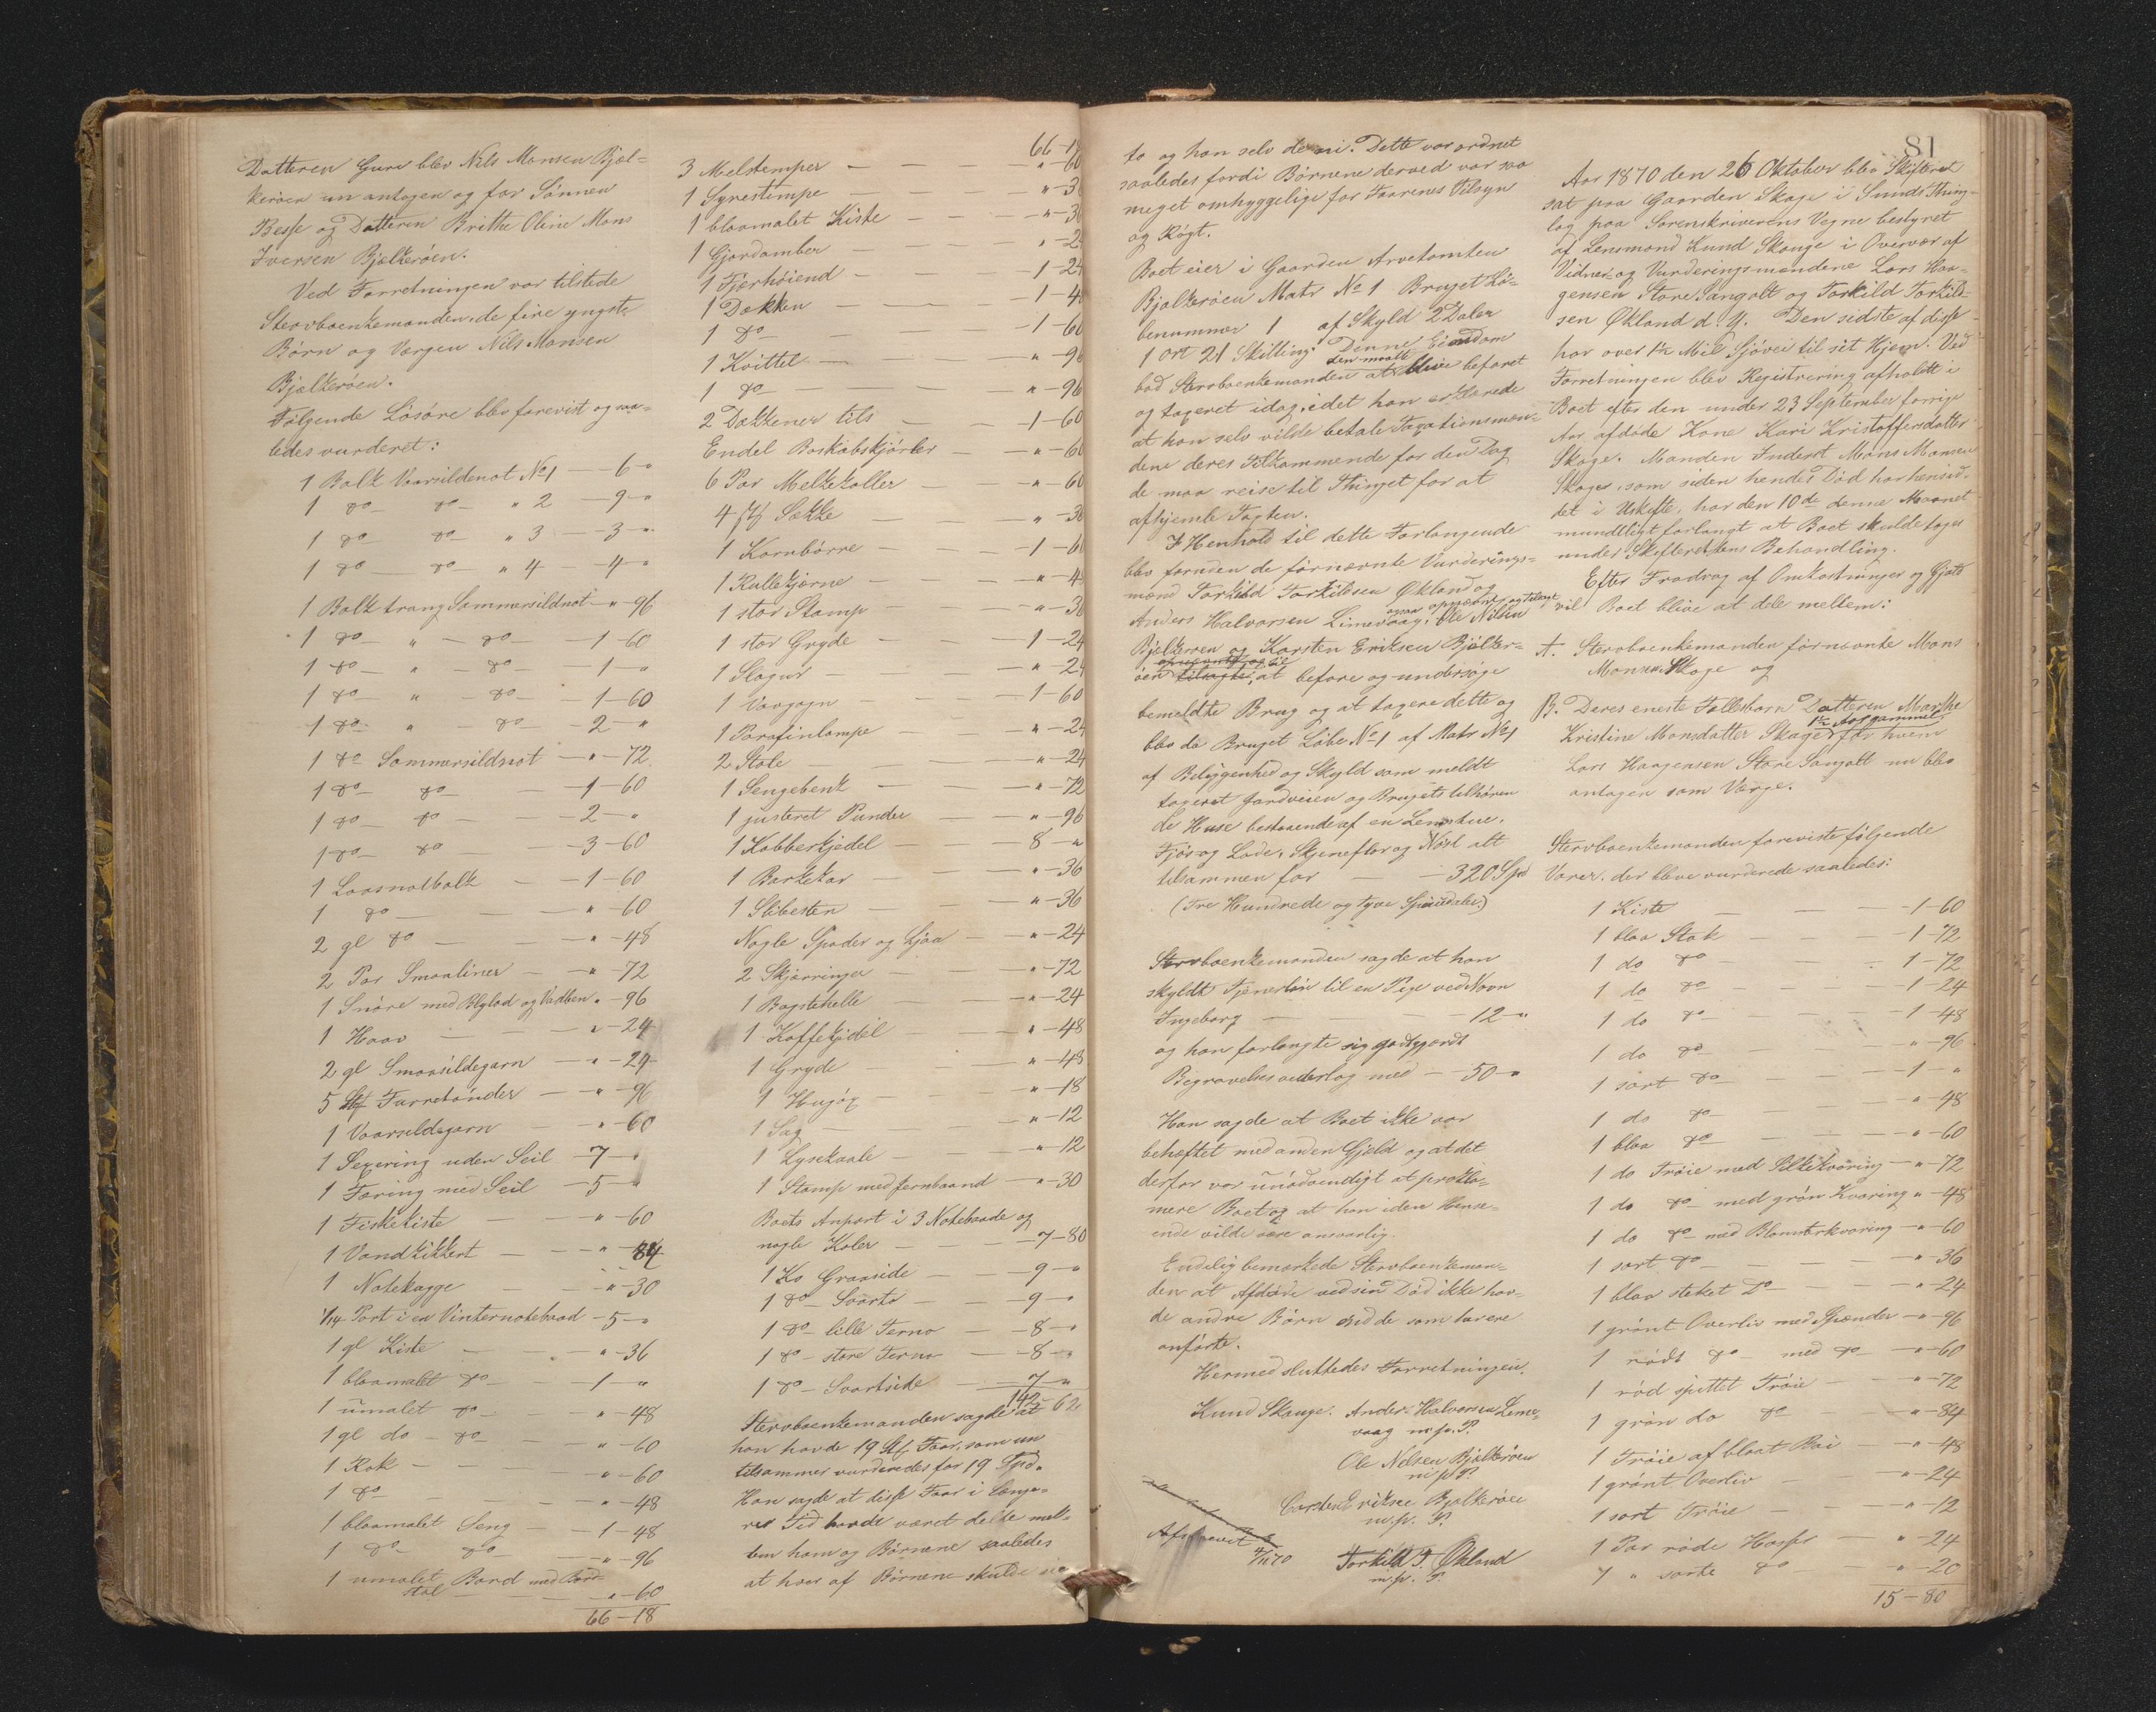 Datteren Guru blev Nils Monsen Bjæl-
kerøen nu antagen og for Sønnen
Besse og Datteren Brithe Oline Mons
Iversen Bjelkerøen.
Ved Forretningen var tilstede
Stervboenkemanden, de fire yngste
Børn og Vergen Nils Monsen
Bjælkerøen.
Følgende Løsøre blev forevist og saa-
ledes vurderet:
1 Balk Vaarsildenot No 1 — 6 - "
1 do — do — " 2 — 9 - "
1 do — do — " 3 — 3 - "
1 do — do — " 4 — 4 - "
1 Balk trang Sommersildnot — " - 96
1 do — " — do — 1 - 60
1 do — " — do — 1 - "
1 do — " — do — 1 - 60
1 do — " — do — 2 - "
1 do Sommersildnot — " - 72
1 do — do — 1 - 60
1 do — do — 2 - "
1 do — do — 3 - 60
1 Laasnotbalk — 1 - 60
1 do — " - 60
2 gl do — " - 48
2 Par Smaaliner — " - 72
1 Snøre med Blylod og Vadben " - 96
1 Haav — " - 24
2 gl Smaasildegarn — " - 24
5 Stk Turretønder — " - 96
1 Vaarsildegarn — " - 60
1 Sexering uden Seil — 7 - "
1 Færing med Seil — 5 - "
1 Fiskekiste — " - 60
1 Vandkikkert — " - 84
1 Notekagge — " - 30
1/14 Part i en Vinternotebaad — 5 - "
1 gl Kiste — " - 36
1 blaamalet do — 1 - "
1 umalet do — " - 48
1 gl do — do — " - 60
1 Rok — " - 60
1 do — " - 48
1 blaamalet Seng — 1 - 48
1 do — do — " - 96
1 umalet Bord med Bord-
stol — " - 60
66 - 18
66 - 18
3 Melstemper — " - 60
1 Syrestempe — " - 3
1 blaamalet Kiste — " - 3
1 Gjordamber — " - 2
1 Fjærhøiend — 1 - 24
1 Dækken — 1 - 4
1 do — 1 - 60
1 Kvittel — " - 96
1 do — " - 96
2 Dækkener tils — 1 - 60
Endel Boskabskjørler — " - 60
6 Par Melkekoller — " - 60
4 Stk Sække — " - 36
1 Kornbørre — 1 - 60
1 Rullekjærne — " - 4
1 stor Stamp — " - 36
1 stor Gryde — 1 - 24
1 Slagur — " - 24
1 Vævgogn — 1 - 60
1 Parafinlampe — " - 24
2 Stole — " - 24
1 Sengebenk — " - 72
1 justeret Punder — " - 96
1 Kobberkjedel — 8 - "
1 Barkekar — " - 36
1 Slibesten — " - 36
Nogle Spader og Ljaa — " - 24
2 Skjærringer — " - 72
1 Bagstehelle — " - 24
1 Kaffekjedel — " - 48
1 Gryde — " - 48
1 Hugøx — " - 18
1 Sag — " - 12
1 Lysekaale — " - 12
1 Stamp med Jernbaand — " - 30
Boets Anpart i 3 Notebaade og
nogle Koler — 7 - 80
1 Ko Graaside — 9 - "
1 do — Svarta — 9 - "
1 do — lille Ferno — 8 - "
1 do — store Ferno — 8 - "
1 do — Svartside — 7 - "
142 - 62
Stervboenkemanden sagde at
han havde 19 Stk Faar, som nu
tilsammen vurderedes for 19 Spd.
Han sagde at disse Faar i Længe-
re Tid havde været delte mel-
lem ham og Børnene saaledes
at hver af Børnene skulde eie
to og han selv de ni. Dette var ordnet
saaledes fordi Børnene derved var saa
meget omhyggelige for Faarenes Tilsyn
og Røgt.
Boet eier i Gaarden Arvetomten
Bjælkerøen Matr No 1 Bruget Lø-
benummer 1 af Skyld 2 Daler
1 Ort 21 Skilling. Denne Eiendom
bad Stervboenkemanden den maatte blive befaret
og taxeret idag, idet han erklærede
at han selv vilde betale Taxationsmæn-
dene deres Tilkommende for den Dag
de maa reise til Thinget for at
afhjemle Taxten.
I Henhold til dette Forlangende
blev foruden de førnævnte Vurderings-
mænd Torkild Torkildsen Økland og
Anders Halvorsen Limevaag, ogsaa opnævnt og tilsagt Ole Nilsen
Bjelkerøen og Karsten Eriksen Bjælker-
øen at befare og undersøge
bemeldte Brug og at taxere dette og
blev da Bruget Løbe No 1 af Matr No 1
af Beliggenhed og Skyld som meldt
taxeret Jordveien og Brugets tilhøren
de Huse bestaaende af en Lemstue,
Fjøs og Lade, Skjeneflor og Nøst alt
tilsammen for — 320 Spd
(Tre Hundrede og tyve Speciedaler)
Stervboenkemanden sagde at han
skyldte Tjenerløn til en Pige ved Navn
Ingeborg — 12 - "
og han forlangte sig godtgjordt
Begravelsesvederlag med — 50 - "
Han sagde at Boet ikke var
beheftet med anden Gjeld og at det
derfor var unødvendigt at prokla-
mere Boet og at han i den Hense-
ende vilde være ansvarlig.
Endelig bemærkede Stervboenkeman-
den at Afdøde ved sin Død ikke hav-
de andre Børn end de som her ere
anførte.
Hermed sluttedes Forretningen.
Knud Skauge. Anders Halvorsen Lime-
vaag m. p. P.
Ole Nilsen Bjælkerøen
m p P.
Carsten Eriksen Bjælkerøen
m. p. P.
Afskrevet
4/11 70
Torkild T. Økland
m. p. P.
81
Aar 1870 den 26 Oktober blev Skifteret
sat paa Gaarden Skage i Sunds Thing-
lag paa Sorenskriverens Vegne bestyret
af Lensmand Knud Skauge i Overvær af
Vidner- og Vurderingsmændene Lars Haa-
gensen Store Sangolt og Torkild Torkild-
sen Økland d. y. Den sidste af disse
har over 1/2 Mil Sjøvei til sit Hjem. Ved
Forretningen blev Registrering afholdt i
Boet efter den under 23 September forrige
Aar afdøde Kone Kari Kristoffersdatter
Skage. Manden Inderst Mons Monsen
Skage, som siden hendes Død har hensid-
det i Uskifte, har den 10de denne Maaned
mundtligt forlangt at Boet skulde tages
under Skifterettens Behandling.
Efter Fradrag af Omkostninger og Gjæld
vil Boet blive at dele mellem:
A. Stervboenkemanden førnævnte Mons
Monsen Skage og
B. Deres eneste Fællesbarn Datteren Marthe
Kristine Monsdatter Skage 1 1/2 Aar gammel for hvem
Lars Haagensen Store Sangolt nu blev
antagen som Verge.
Stervboenkemanden foreviste følgende
Varer. der bleve vurderede saaledes:
1 Kiste — 1 - 60
1 blaa Stak — 1 - 72
1 do do — 1 - 72
1 do do — 1 - 24
1 do do — 1 - 48
1 do do — " - 96
1 sort do — 1 - "
1 do do — " - 48
1 blaa do — " - 60
1 do Trøie med Silkekvaring — " - 72
1 do do — med grøn Kvaring " - 48
1 do do — med Blomsterkvaring — " - 60
1 sort do — " - 36
1 blaa steket do — " - 24
1 grønt Overliv med Spænder — " - 96
1 rødt do — med do — " - 60
1 rød spittet Trøie — " - 72
1 grøn do do — " - 84
1 Trøie af blaat Bai — " - 48
1 grønt Overliv — " - 24
1 sort Trøie — " - 12
1 Par røde Hoser — " - 24
1 " sorte do — " - 20
15 - 80